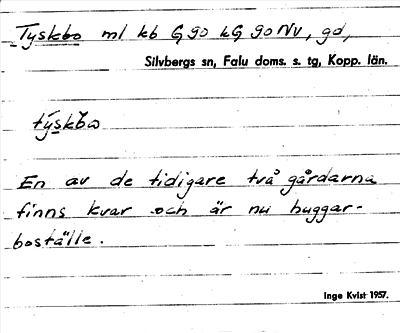 Tyskbo ml kb G 90 kG 90 NV, gd,
Silvbergs sn, Falu doms. s. tg, Kopp. län.
týskƀω
En av de tidigare två gårdarna
finns kvar och är nu huggar-
boställe.
Inge Kvist 1957.